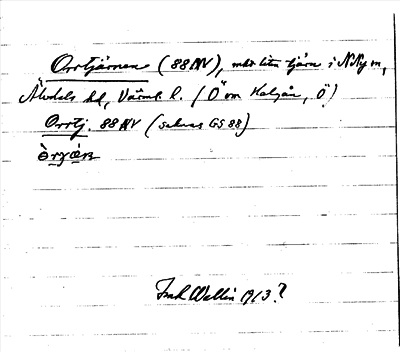 Orrtjärnen (88 NV), mkt liten tjärn i N Ny sn,
Älvdals hd, Värml. l. (Ö om Kalsån, Ö)
Orrtj. 88 NV (saknas GS 88)
òrʒæ̀ɳ
Fredr Wallin 1913?